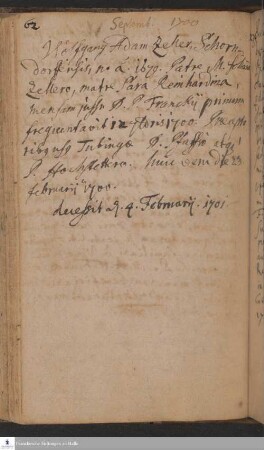 62
Septemb. 1700
Wolfgang Adam Zeller, Schorn-
dorffensis, no. A. 1679. Patre, M. 
Zellero, matre Sara Reinhardina,
mensam jussu D. P. Franckij primum
frequentavit 12 7bris 1700. Praecep-
toribus Tubingae D. Pfaffio atq;
P. Hochstettero. huc venit die 23
februarij 1700.
discessit d. 4. Februarij. 1701.
Franckesche Stiftungen zu Halle